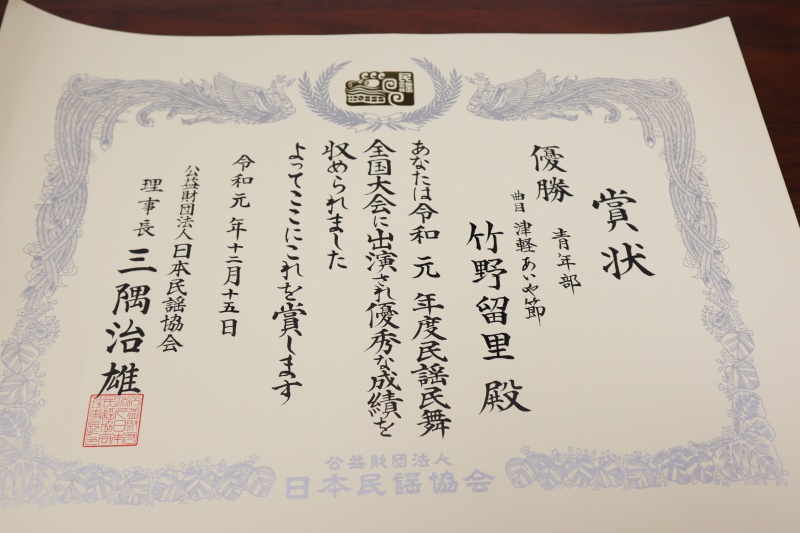 民謡
賞状
優勝 青年部
曲目 津軽あいや節
竹野留里 殿
あなたは令和 元 年度民謡民舞
全国大会に出演され優秀な成績を
収められました
よってここにこれを賞します
令和 元 年十二月十五日
公益財団法人日本民謡協会
理事長 三隅治雄
公益財団法人
日本民謡協会